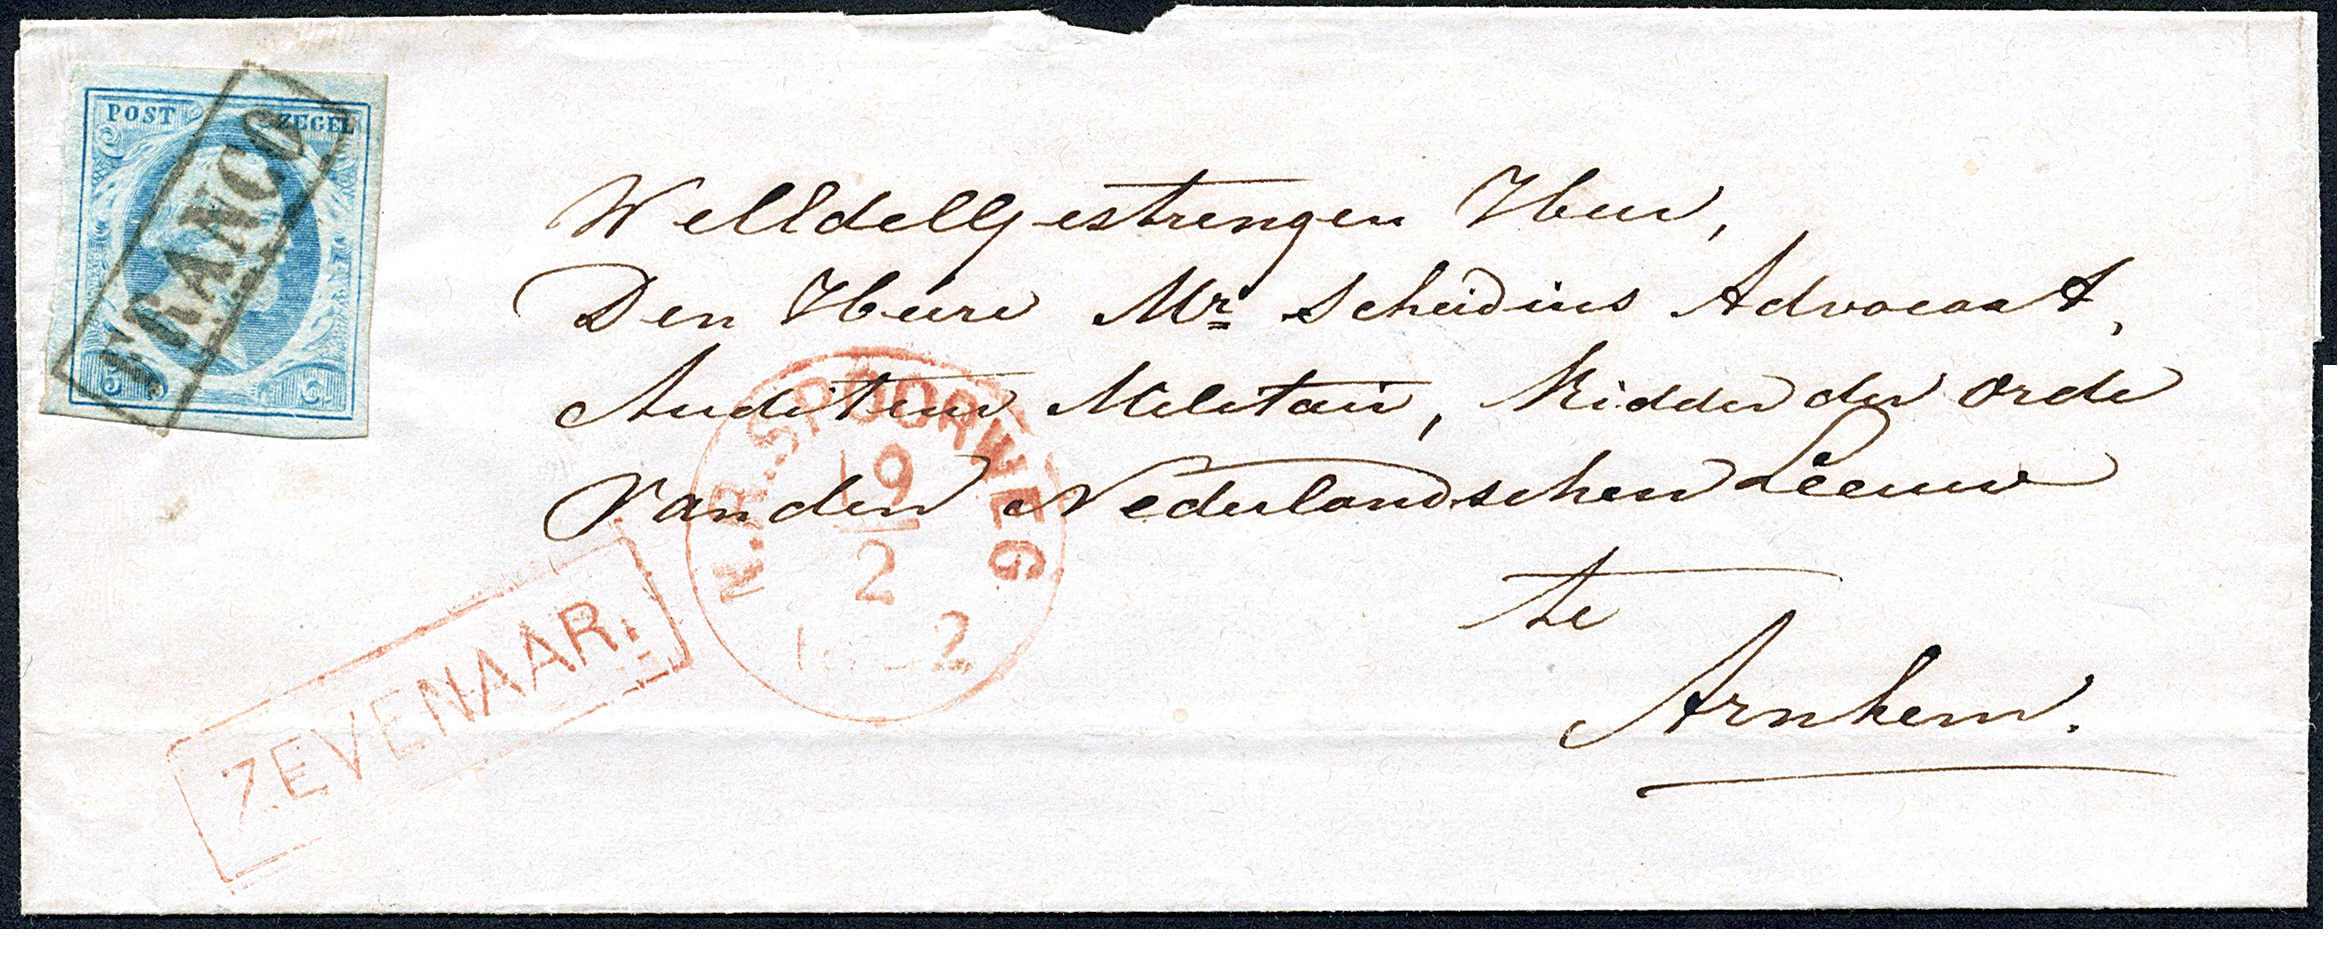 POST ZEGEL
FRANCO
5 C.
WellEdellGestrengen Heer,
Den Heere Mr Scheidius Advocaat,
Auditeur Militair, Ridder der Orde
van den Nederlandschen Leeuw
te
Arnhem.
N.R. SPOORWEG
19
2
ZEVENAAR.